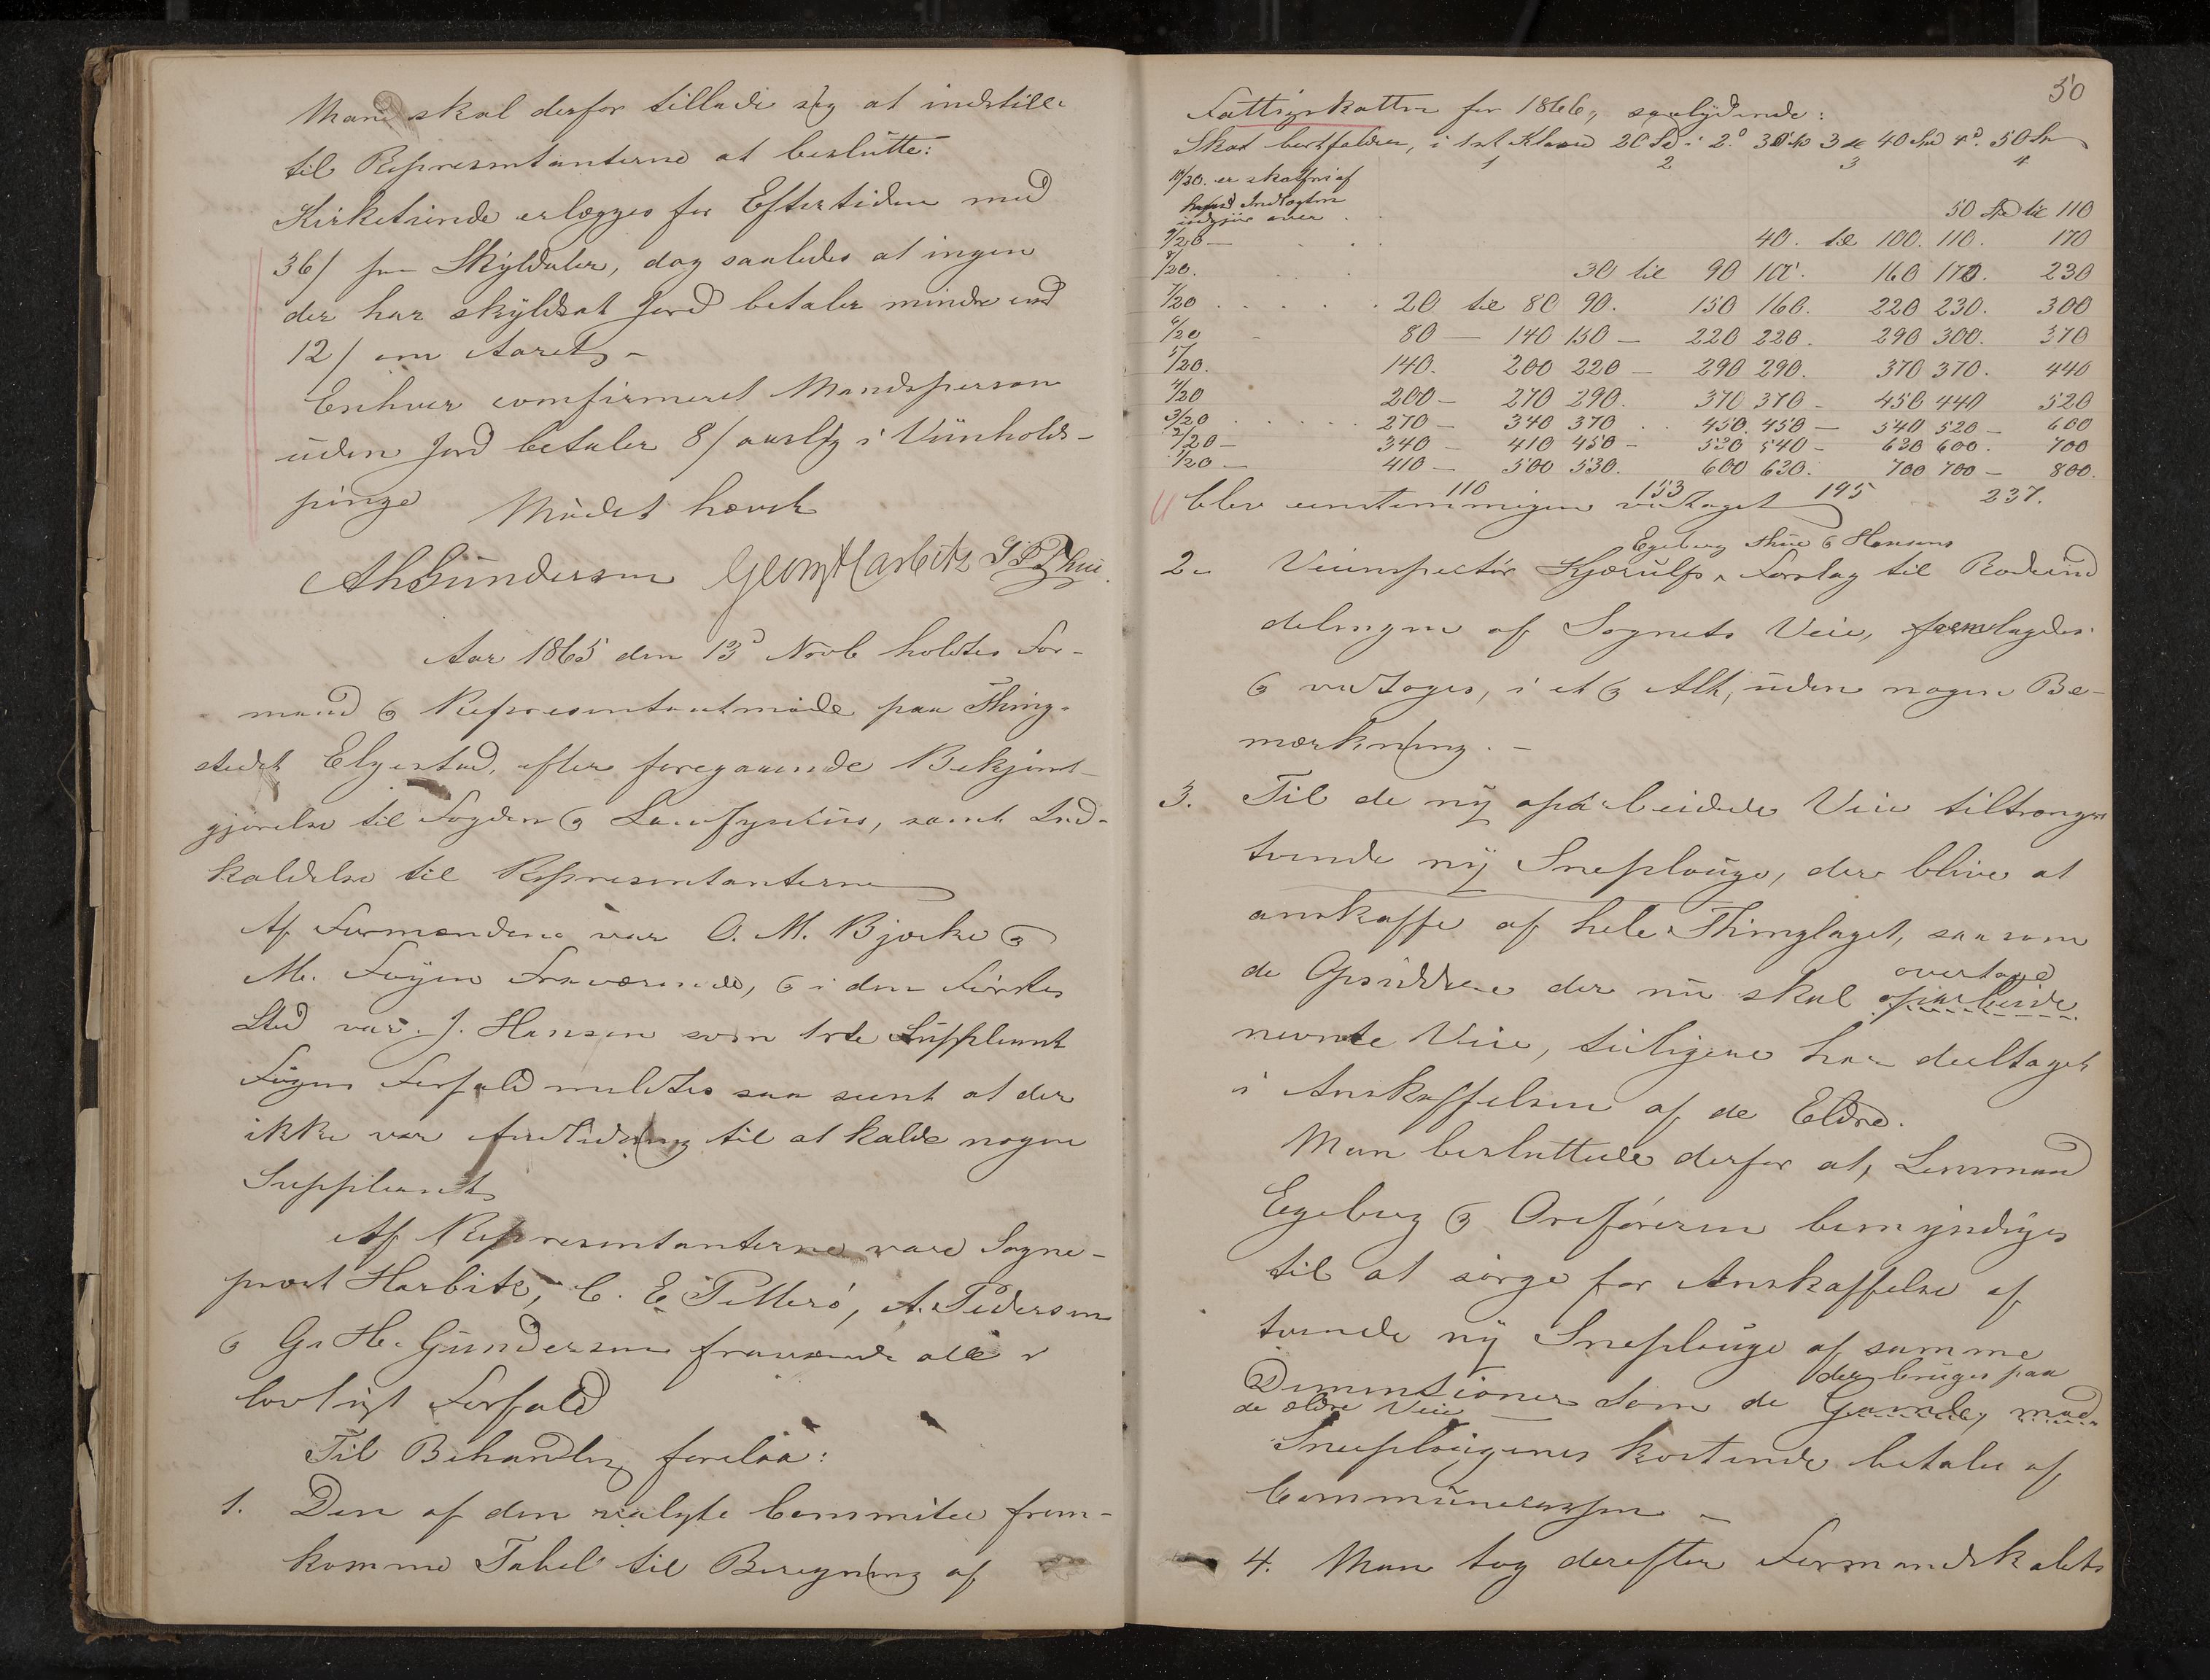 Man skal derfor tillade sig at indstille
til Representanterne at beslutte:
Kirketiende erlægges for Eftertiden med
36/ pr Skylddaler, dog saaledes at ingen
der har skyldsat Jord betaler mindre end
12/ om Aaret –
Enhver confirmeret Mandsperson
uden Jord betaler 8/ aarlig i Viinholds-
pinge Mødet hævet
AhGundersen Georg Harbitz
Aar 1865 den 13d Novb holdtes For-
mand & Representantmøde paa Thing-
stedet Elgestad, efter foregaaende Bekjendt-
gjørelse til Fogden & samt Ind-
kaldelse til Representanterne
Af Formændene var O. M. Bjerke &
M. Føyen Fraværende, & i den Førstes
Sted var J. Hansen som 1ste Suppleant
Føyens Forfald meldtes saa seent at der
ikke var til at kalde nogen
Suppleant
Af Representanterne vare Sogne-
præst Harbitz, C. E. Petterö, A. Pedersen
& G. H. Gundersen fraværende alle v
lovligt Forfald
Til Behandling forelaa:
1. Den af den valgte Committee frem-
komne Tabel til Beregning af
50
Fattigskatten for 1866, saalydende:
Skat bortfalder, i 1st Klasse 20 Sp i 2d 30 Sp 3de 40 Sp 4d 50 Sp
1 2 3 4
10/20. er skattfri af
Indtægten
over 50 Sp til 110
9/20 – 40. til 100. 110. 170
8/20. 30 til 90 100. 160 170. 230
7/20 20 til 80 90. 150 160. 220 230. 300
6/20 80 – 140 150 – 220 220. 290 300. 370
5/20. 140. 200 220 – 290 290. 370 370. 440
4/20 200 – 270 290. 370 370 – 450 440 520
3/20 270 – 340 370 450. 450 – 540 520 – 600
2/20 – 340 – 410 450 – 530 540 – 630 600. 700
1/20 – 410 – 500 530. 600 630. 700 700 – 800.
110 153 195 237.
blev eenstemmigen vedtaget
Egeberg Thue & Hansens
2. Veiinspectør Kjærulfs Forslag til Rodeind
delingen af Sognets Veie, foredroges
& vedtoges, i et & Alt, uden nogen Be-
mærkning. –
3. Til de ny oparbeidede Veie tiltrænges
tvende ny Sneplouge, der blive at
anskaffe af hele Thinglaget, saasom
overtage
de Opsiddere der nu skal oparbeide
nevnte Veie, tidligere har deeltaget
i Anskaffelsen af de Eldre.
Man besluttede derfor at, Lensmand
Egeberg & Ordføreren bemyndiges
til at sørge for Anskaffelse af
tvende ny Sneplouge af samme
der bruges paa
Dimentioner som de Gamle, med
de ældre Veie
Sneplougenes kostende betales af
Communecassen –
4. Man tog derefter Formandskabets